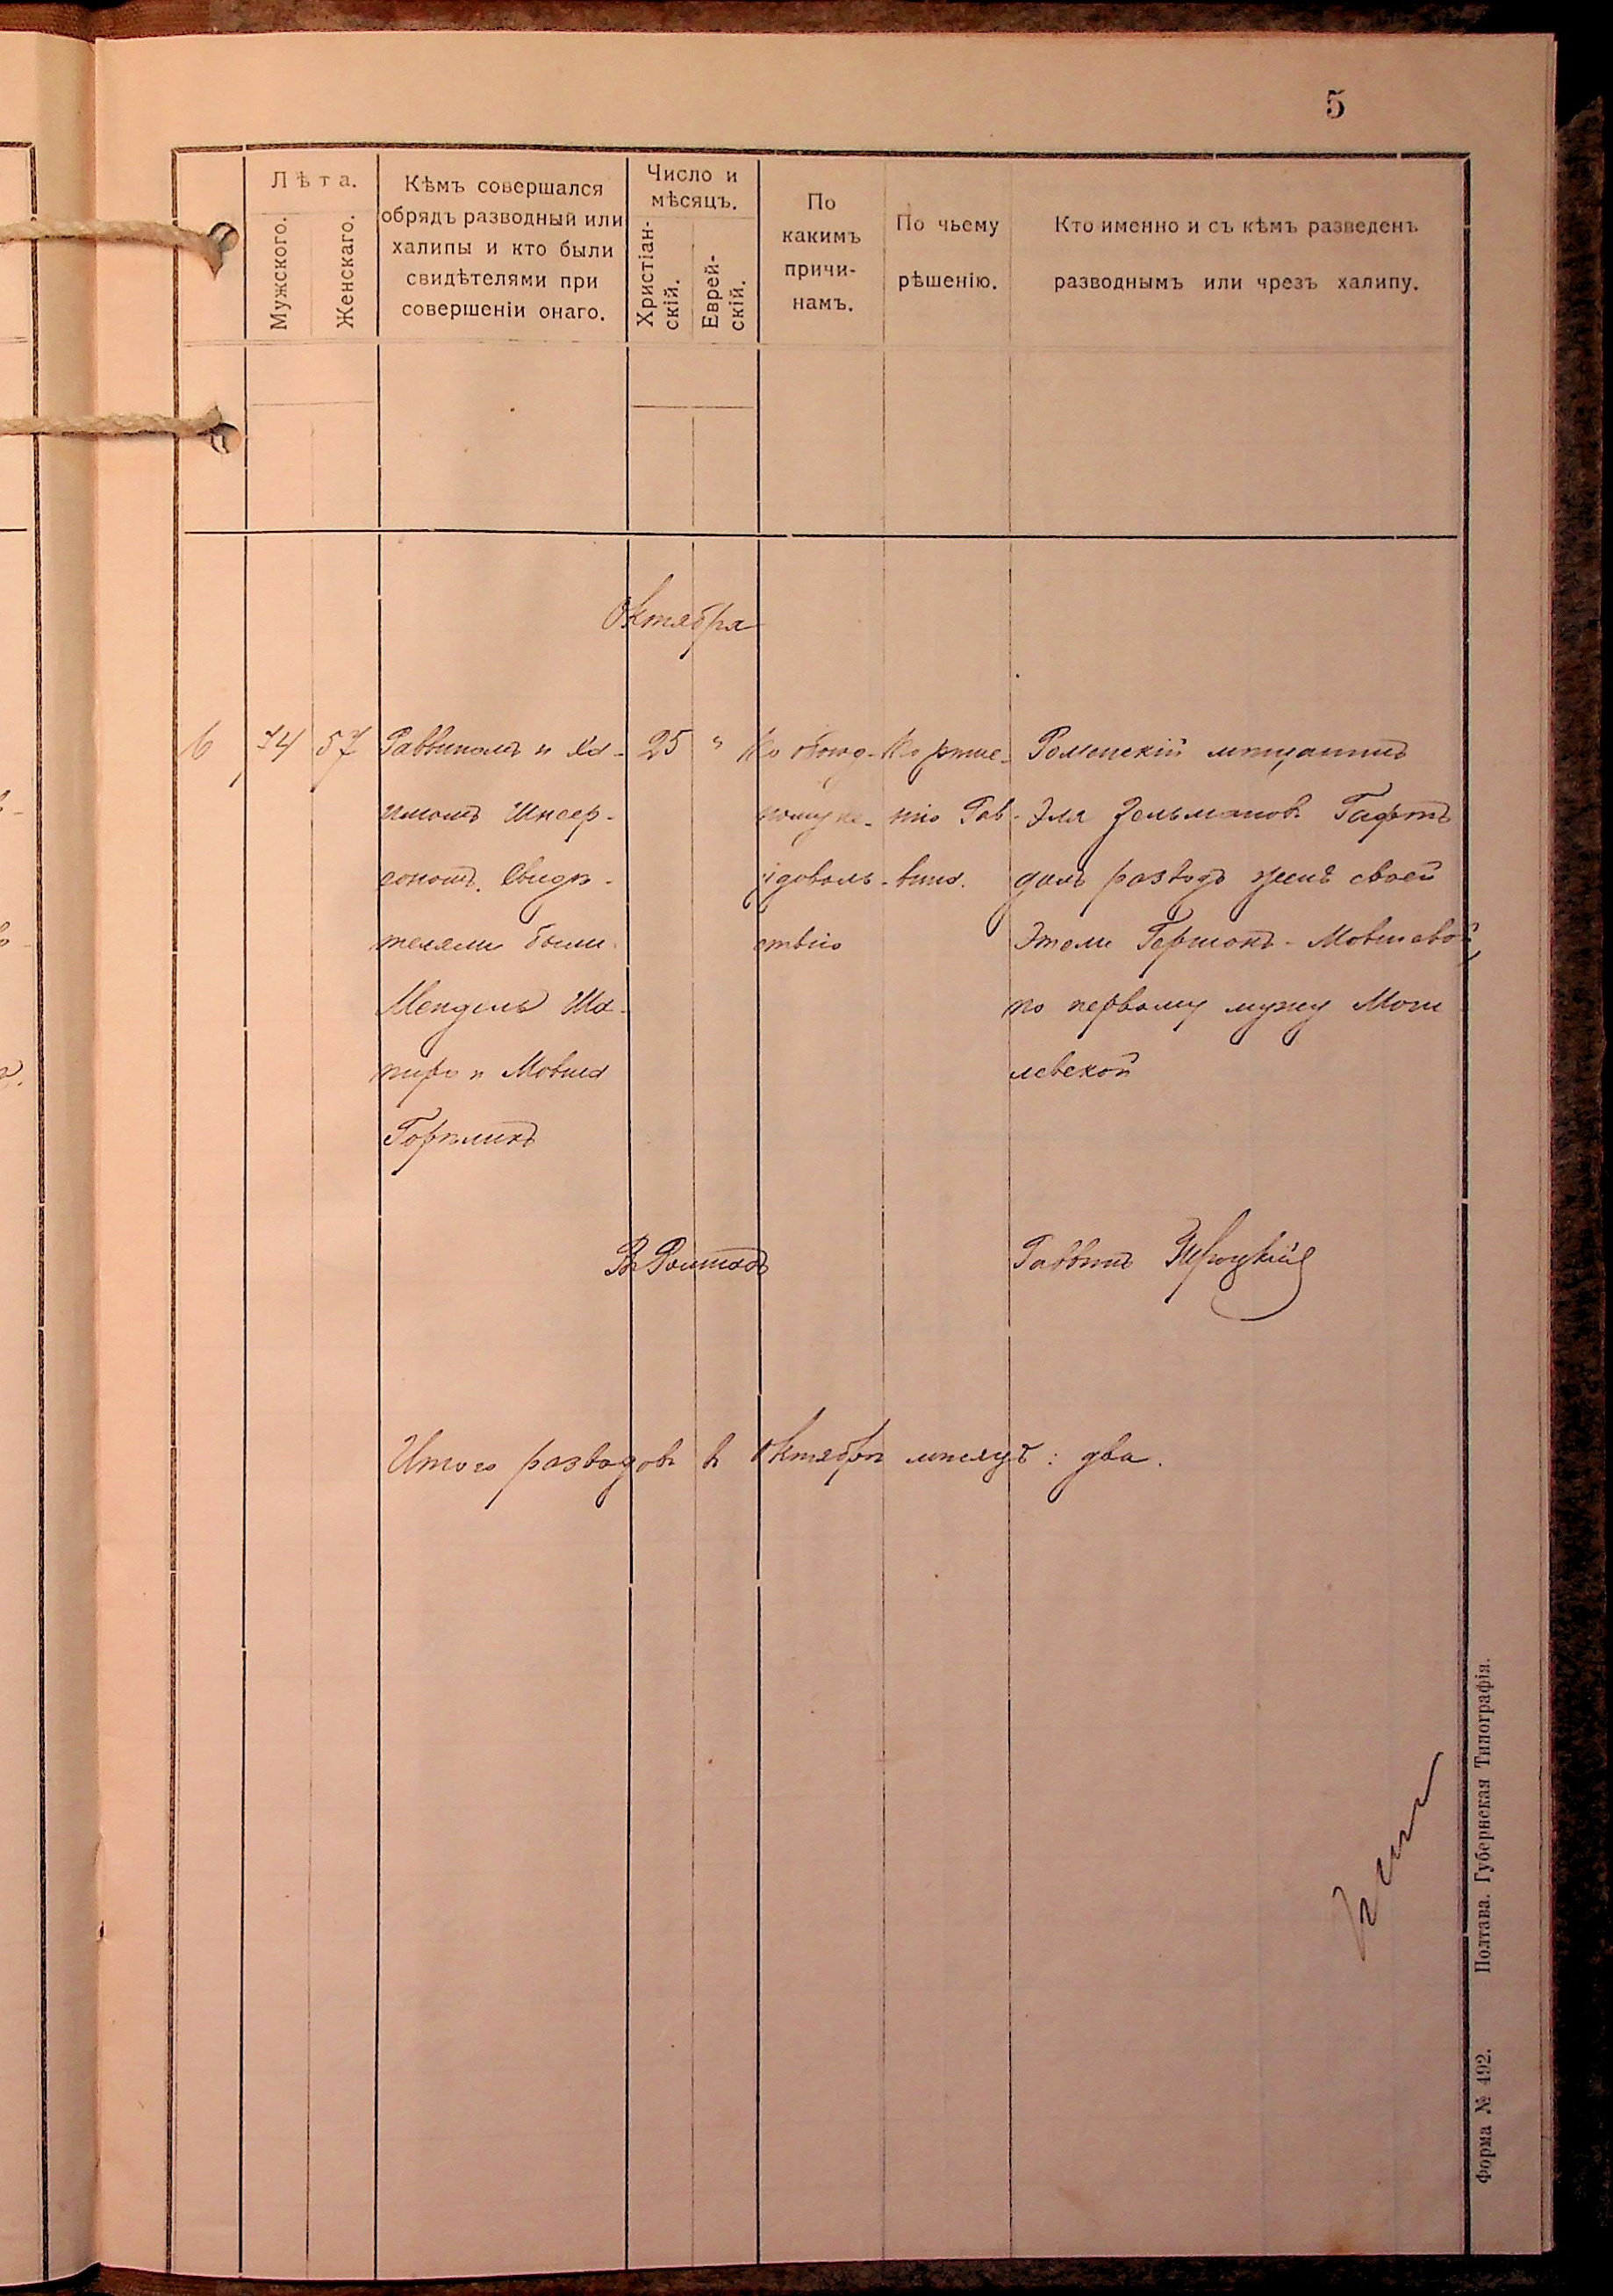 5
Лѣта.
Мужского.
Женскаго.
Кѣмъ совершался
обрядъ разводный или
халипы и кто были
свидѣтелями при
совершеніи онаго.
Число и
мѣсяцъ.
Христіан-
скій.
Еврей-
скій.
По
какимъ
причи-
намъ.
По чьему
рѣшенію.
Кто именно и съ кѣмъ разведенъ
разводнымъ или чрезъ халипу.
Октября
6
74
57
Раввиномъ и Ха-
имомъ
сономъ. Свидѣ-
телями были
Мендель Ша-
пиро и Мовша
Горѣликъ
25
"
По обоюд-
ному не-
удоволь-
ствію
По рѣше-
нію Рав-
вина.
Роменскій мѣщанинъ
Эля Зельмановъ
далъ разводъ женѣ своей
Этели Гершонъ-Мовшевой
по первому мужу Моги
левской
Раввинъ
Итого разводовъ въ Октябрѣ мѣсяцѣ: два.
Полтава. Губернская Типографія.
Форма № 492.